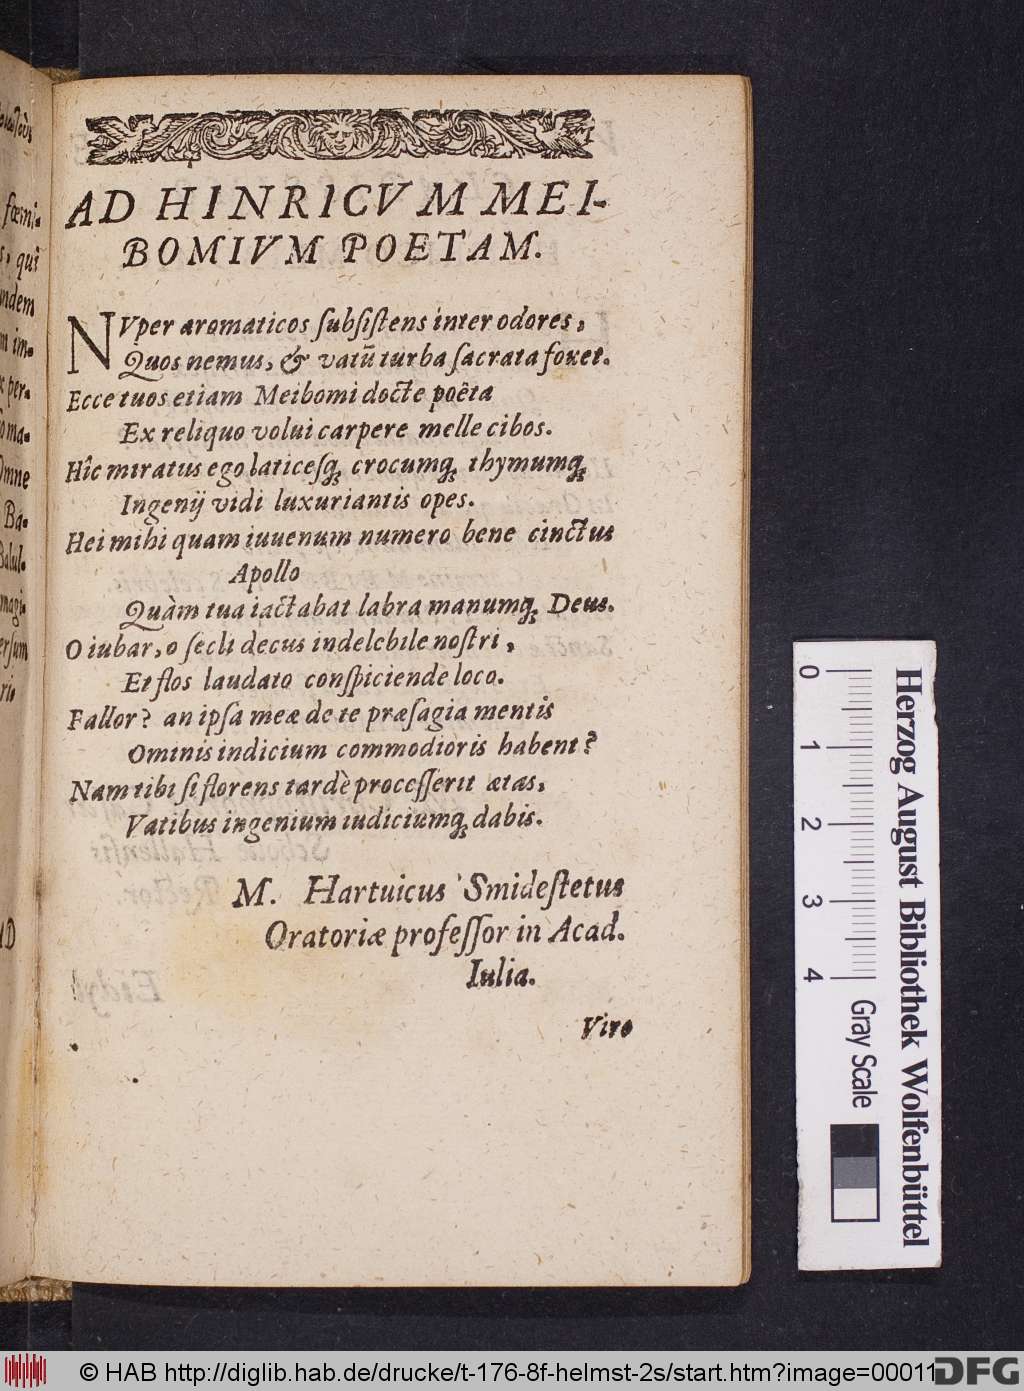 AD HINRICVM MEI-
BOMIVM POETAM.
NVper aromaticos ſubſiſtens inter odores,
Quos nemus, & vatū turba ſacrata fovet.
Ecce tuos etiam Meibomi docte poêta
Ex reliquo volui carpere melle cibos.
Hîc miratus ego laticeſq́; crocumq́; thymumq́;
Ingenij vidi luxuriantis opes.
Hei mihi quam iuuenum numero bene cinctus
Apollo
Quàm tua iactabat labra manumq́; Deus.
O iubar, o ſecli decus indelebile noſtri,
Et flos laudato conſpiciende loco.
Fallor? an ipſa meæ de te præſagia mentis
Ominis indicium commodioris habent?
Nam tibi ſi florens tardè proceſſerit ætas,
Vatibus ingenium iudiciumq́; dabis.
M. Hartuicus Smideſtetus
Oratoriæ profeſſor in Acad.
Iulia.
Viro
fœmi-
qui
im-
per-
Omne
Ba-
Balul-
magi-
0 1 2 3 4
Gray Scale
Herzog August Bibliothek Wolfenbüttel
© HAB http://diglib.hab.de/drucke/t-176-8f-helmst-2s/start.htm?image=00011
DFG